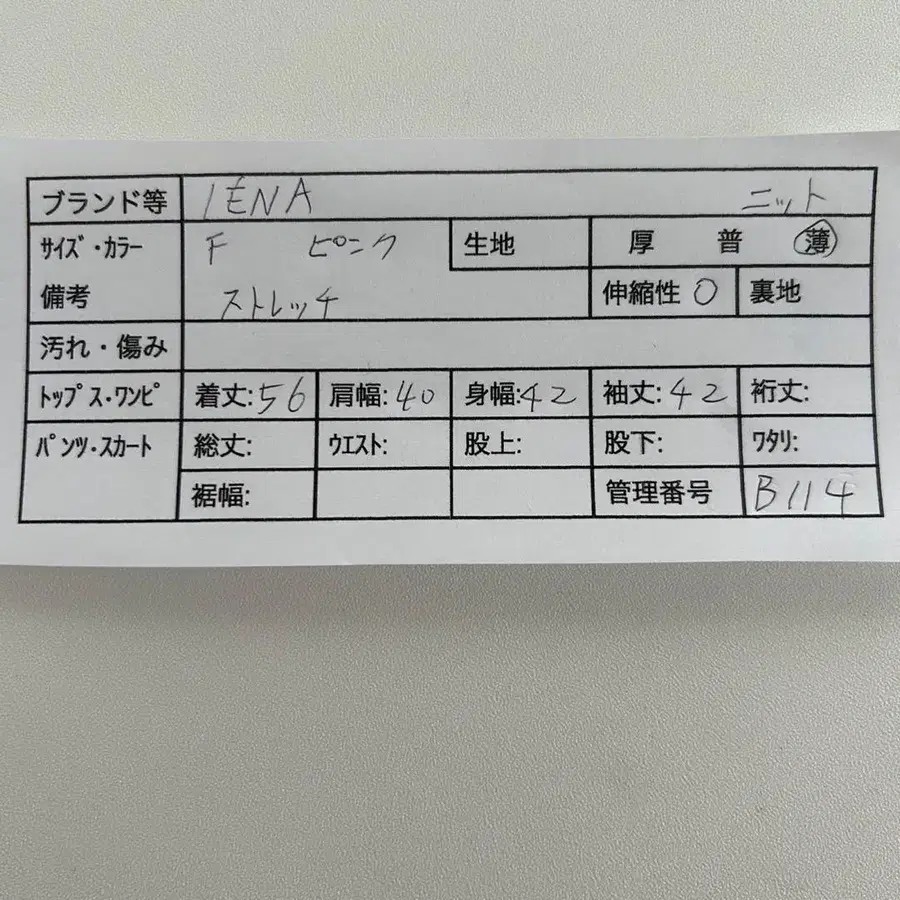 ブランド等 IENA ニット
サイズ・カラー F ピンク 生地 厚 普 薄
備考 ストレッチ 伸縮性 〇 裏地
汚れ・傷み
トップス・ワンピ 着丈:56 肩幅:40 身幅:42 袖丈:42 裄丈:
パンツ・スカート 総丈: ウエスト: 股上: 股下: ワタリ:
裾幅: 管理番号 B114